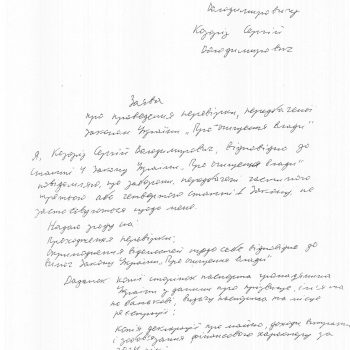 Володимировичу
Кезеріз Сергій
Володимирович
Заява
про проведення перевірки, передбаченої
Законом України „Про очищення влади"
Я, Сергій Володимирович, відповідно до
статті 4 Закону України „Про очищення влади"
повідомляю, що заборони, передбачені частиною
третьою або четвертою статті 1 Закону, не
застосовуються щодо мене.
Надаю згоду на:
проходження перевірки;
оприлюднення відомостей щодо себе відповідно до
вимог Закону України „Про очищення влади"
Додаток: копії сторінок паспорта громадянина
України з даними про прізвище, ім'я та
по батькові, видачу паспорта та місце
реєстрації;
Копія декларації про майно, доходи, витрати
і зобов'язання фінансового характеру за